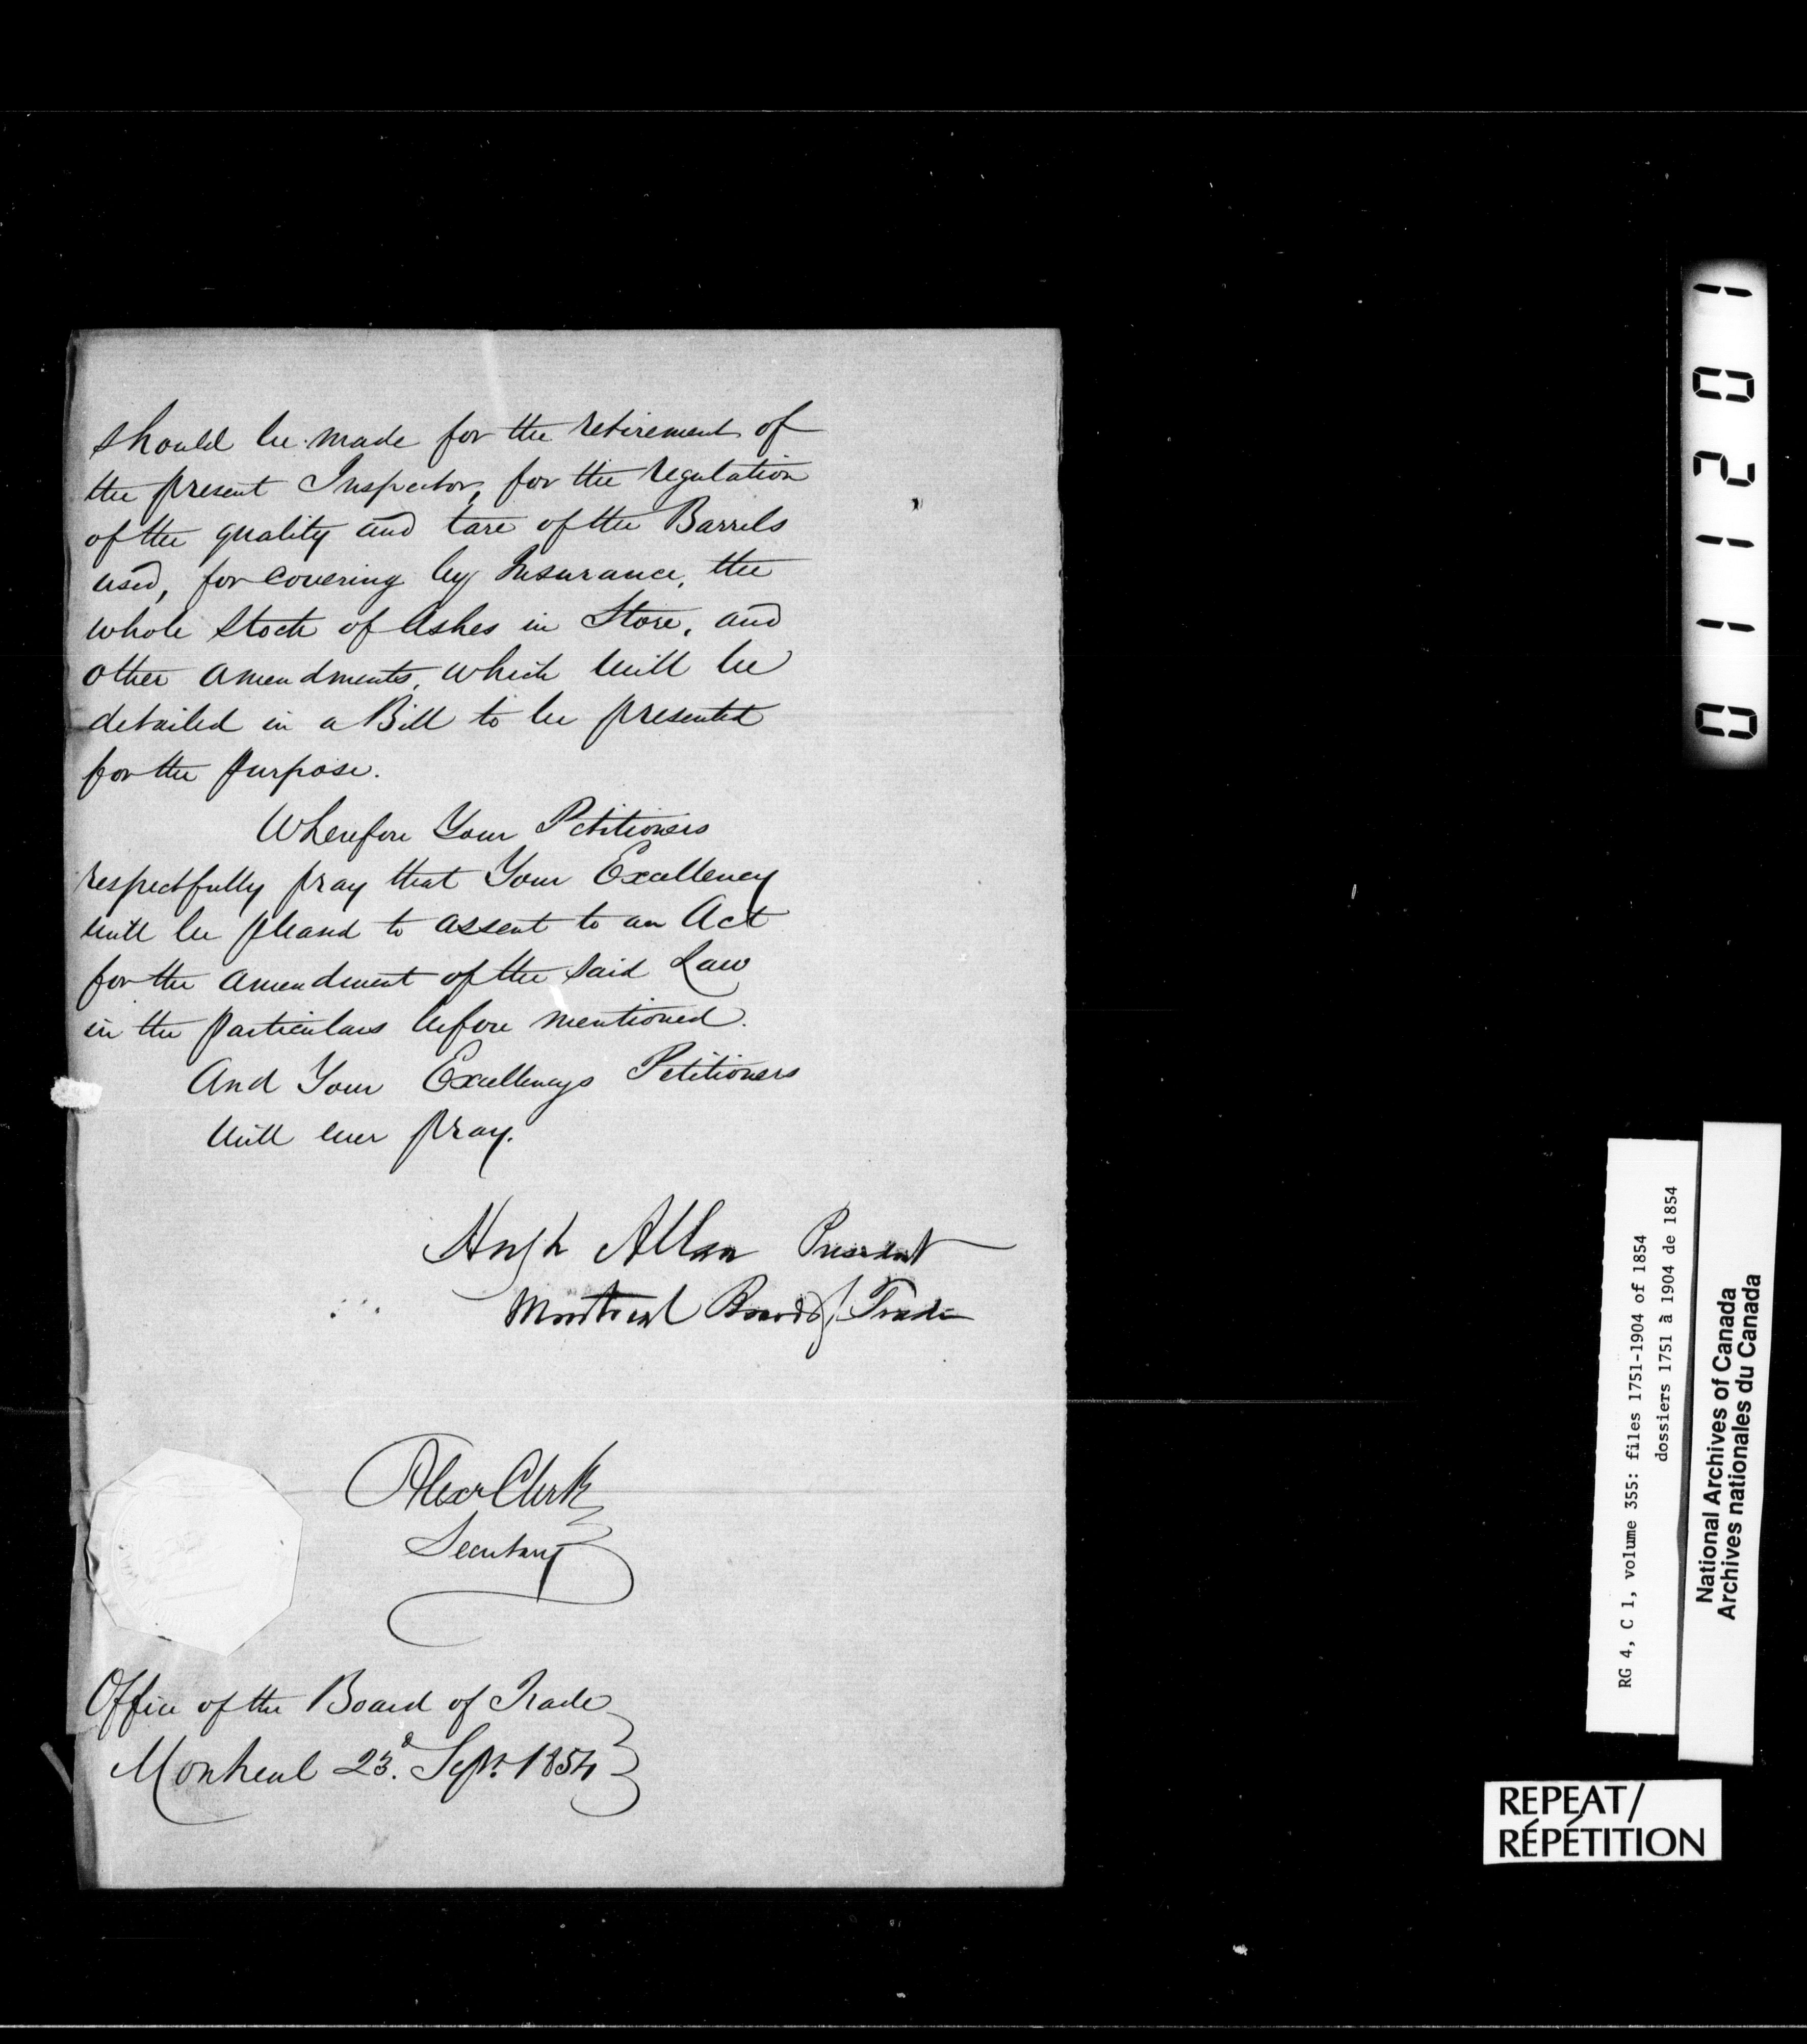 should be made for the retirement of
the present Inspector, for the regulation
of the quality and tare of the Barrels
used, for covering by Insurance, the
whole Stock of Ashes in Store, and
other amendments, which will be
detailed in a Bill to be presented
for the purpose.
Wherefore Your Petitioners
respectfully pray that Your Excellency
will be pleased to assent to an Act
for the amendment of the said Law
in the particulars before mentioned.
And Your Excellencys Petitioners
will ever pray.
Hugh Allan President
Montreal Board of Trade
Alexr Clerk
Secretary
Office of the Board of Trade
Montreal 23d. Sept. 1854
011201
RG 4, C 1, volume 355: files 1751-1904 of 1854
dossiers 1751 à 1904 de 1854
National Archives of Canada
Archives nationales du Canada
REPEAT/
RÉPÉTITION